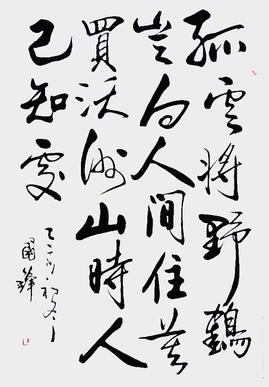 孤雲將野鶴
豈向人間住莫
買沃洲山時人
已知處
初冬
國鋒